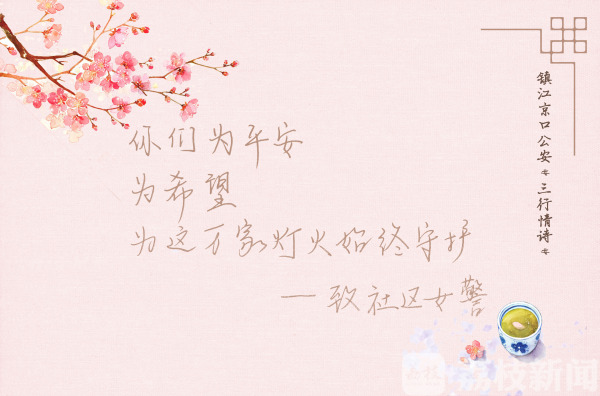 你们为平安
为希望
为这万家灯火始终守护
——致社区女警
镇江京口公安《三行情诗》
荔枝新闻